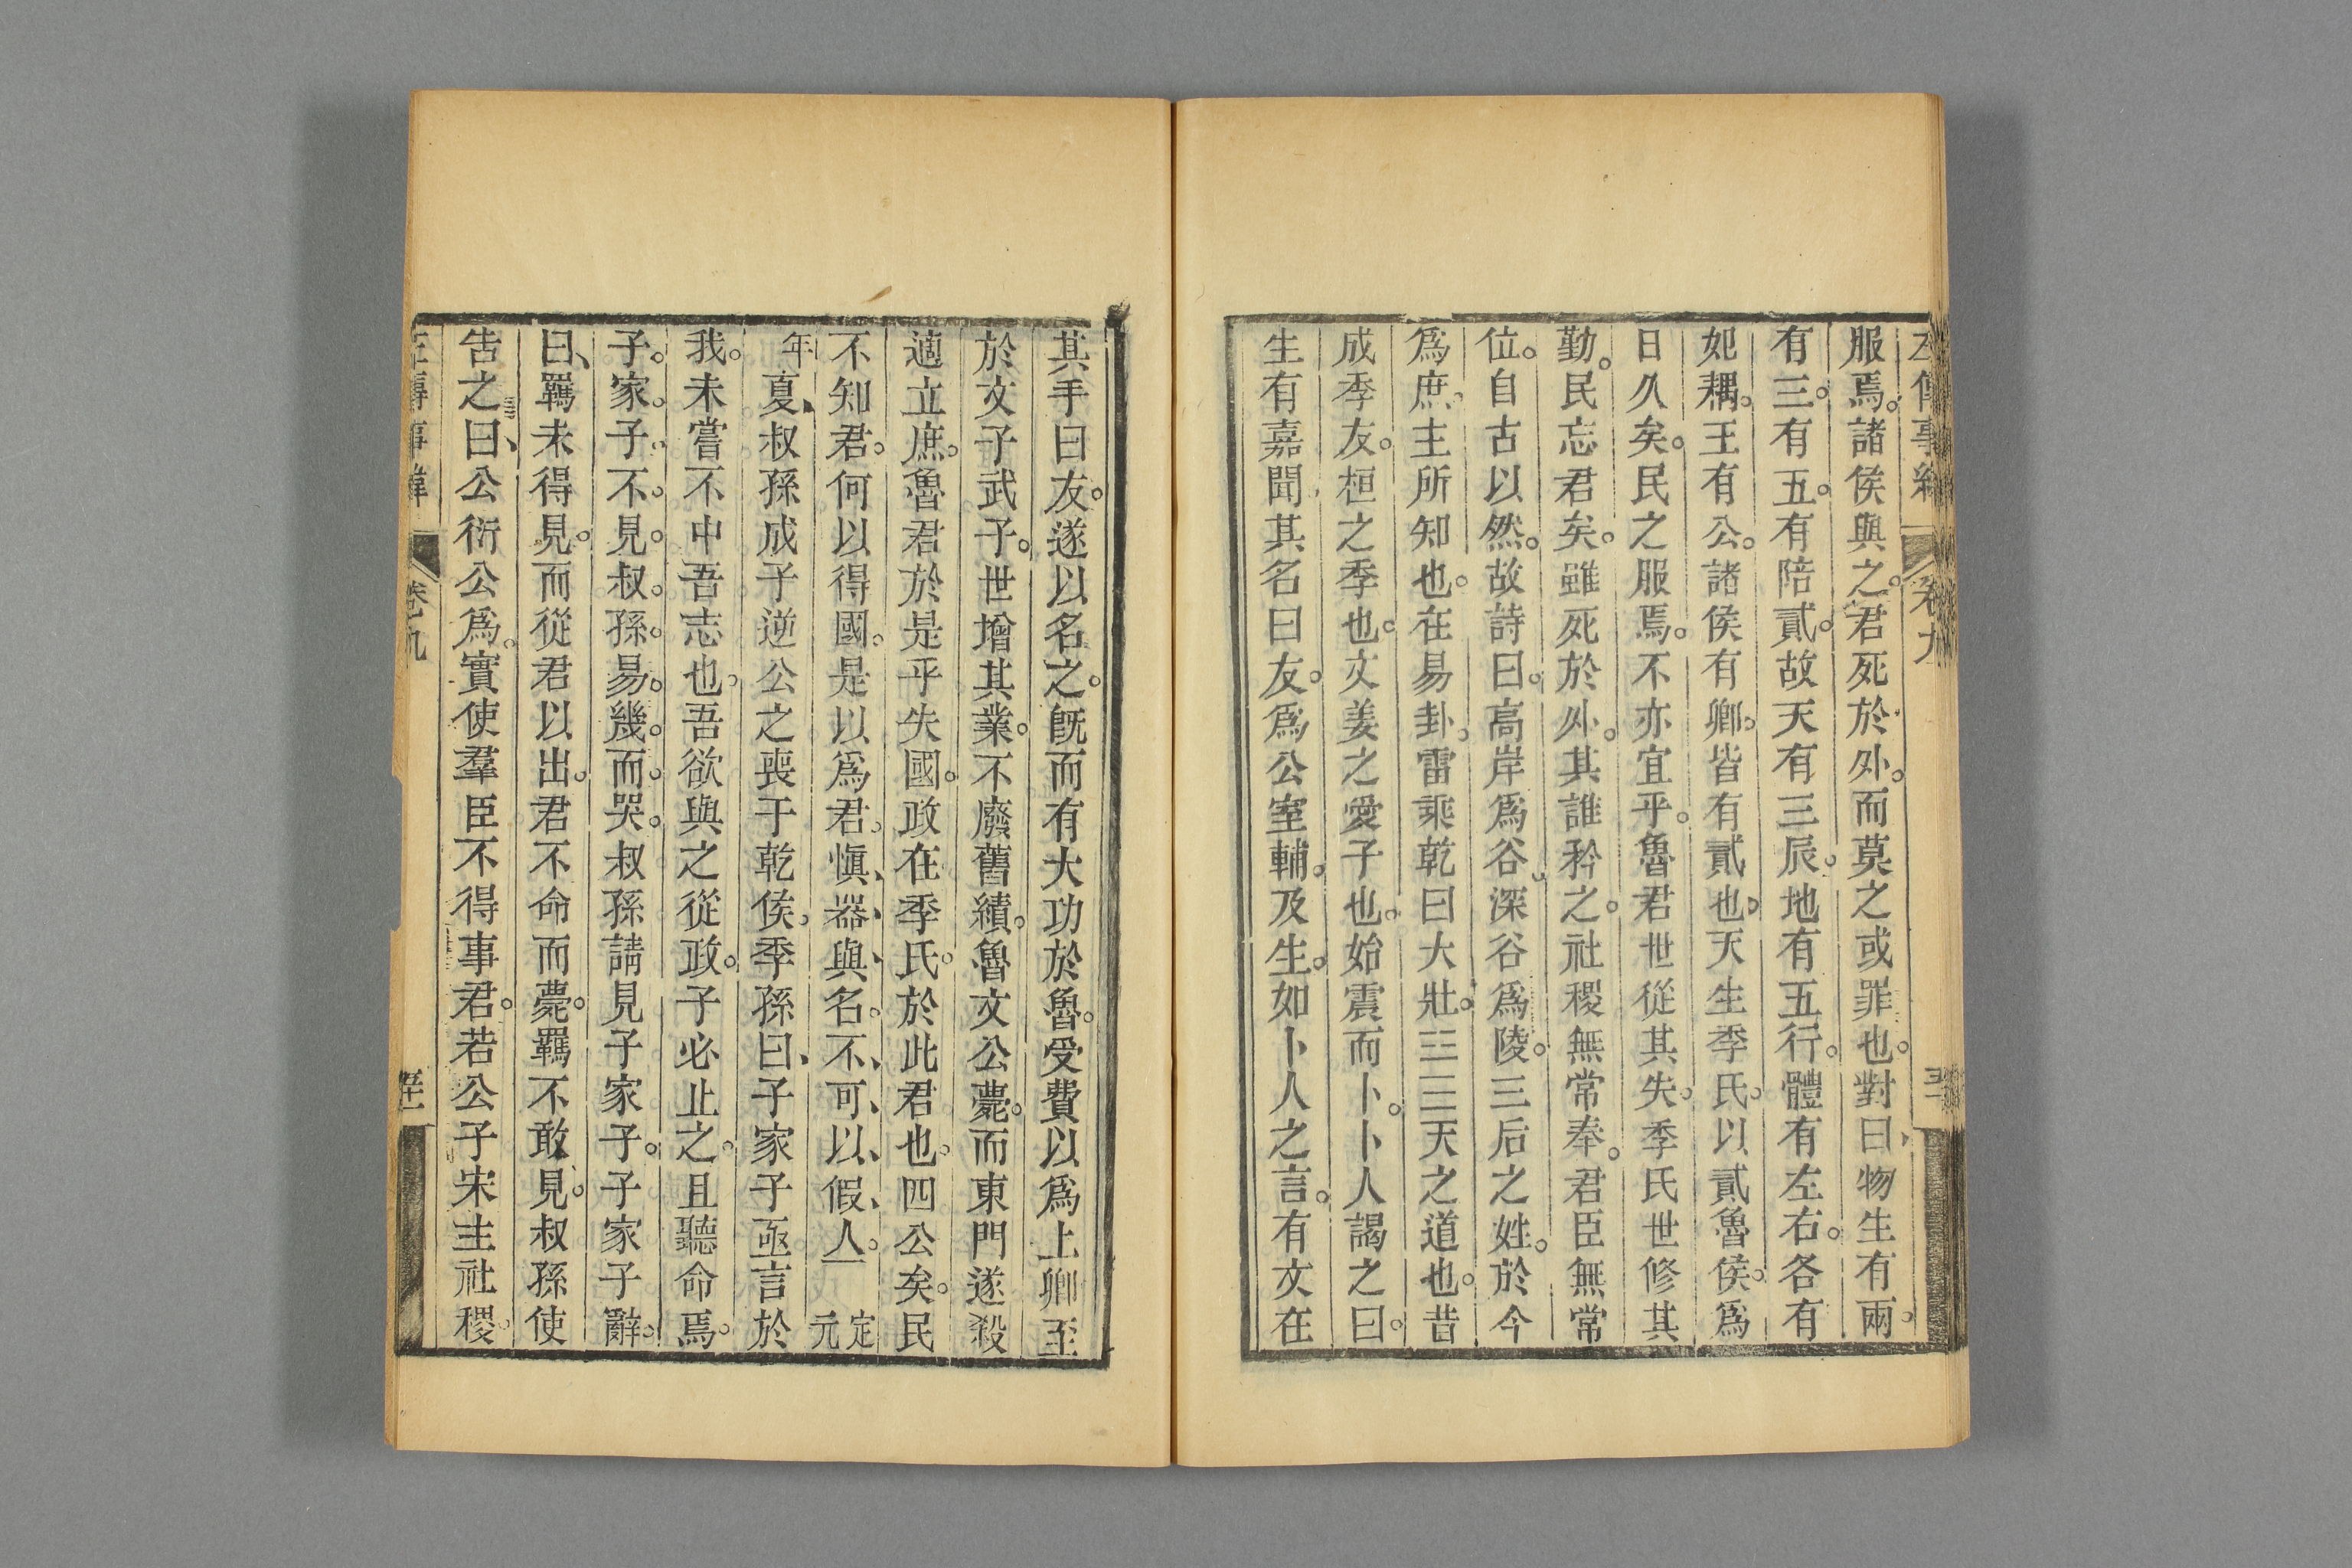 服焉諸侯與之君死於外而莫之或罪也對曰物生有兩
有三有五有陪貳故天有三辰地有五行體有左右各有
妃耦王有公諸侯有卿皆有貳也天生季氏以貳魯侯爲
日久矣民之服焉不亦宜乎魯君世從其失季氏世修其
勤民忘君矣雖死於外其誰矜之社稷無常奉君臣無常
位自古以然故詩曰高岸爲谷深谷爲陵三后之姓於今
爲庶主所知也在易卦雷乘乾曰大壯䷡天之道也昔
成季友桓之季也文姜之愛子也始震而卜卜人謁之曰
生有嘉聞其名曰友爲公室輔及生如卜人之言有文在
其手曰友遂以名之旣而有大功於魯受費以爲上卿至
於文子武子世增其業不廢舊績魯文公薨而東門遂殺
適立庶魯君於是乎失國政在季氏於此君也四公矣民
不知君何以得國是以爲君愼器與名不可以假人 定元
年夏叔孫成子逆公之喪于乾侯季孫曰子家子亟言於
我未嘗不中吾志也吾欲與之從政子必止之且聽命焉
子家子不見叔孫易幾而哭叔孫請見子家子子家子辭
曰羈未得見而從君以出君不命而薨羈不敢見叔孫使
告之曰公衍公爲實使羣臣不得事君若公子宋主社稷